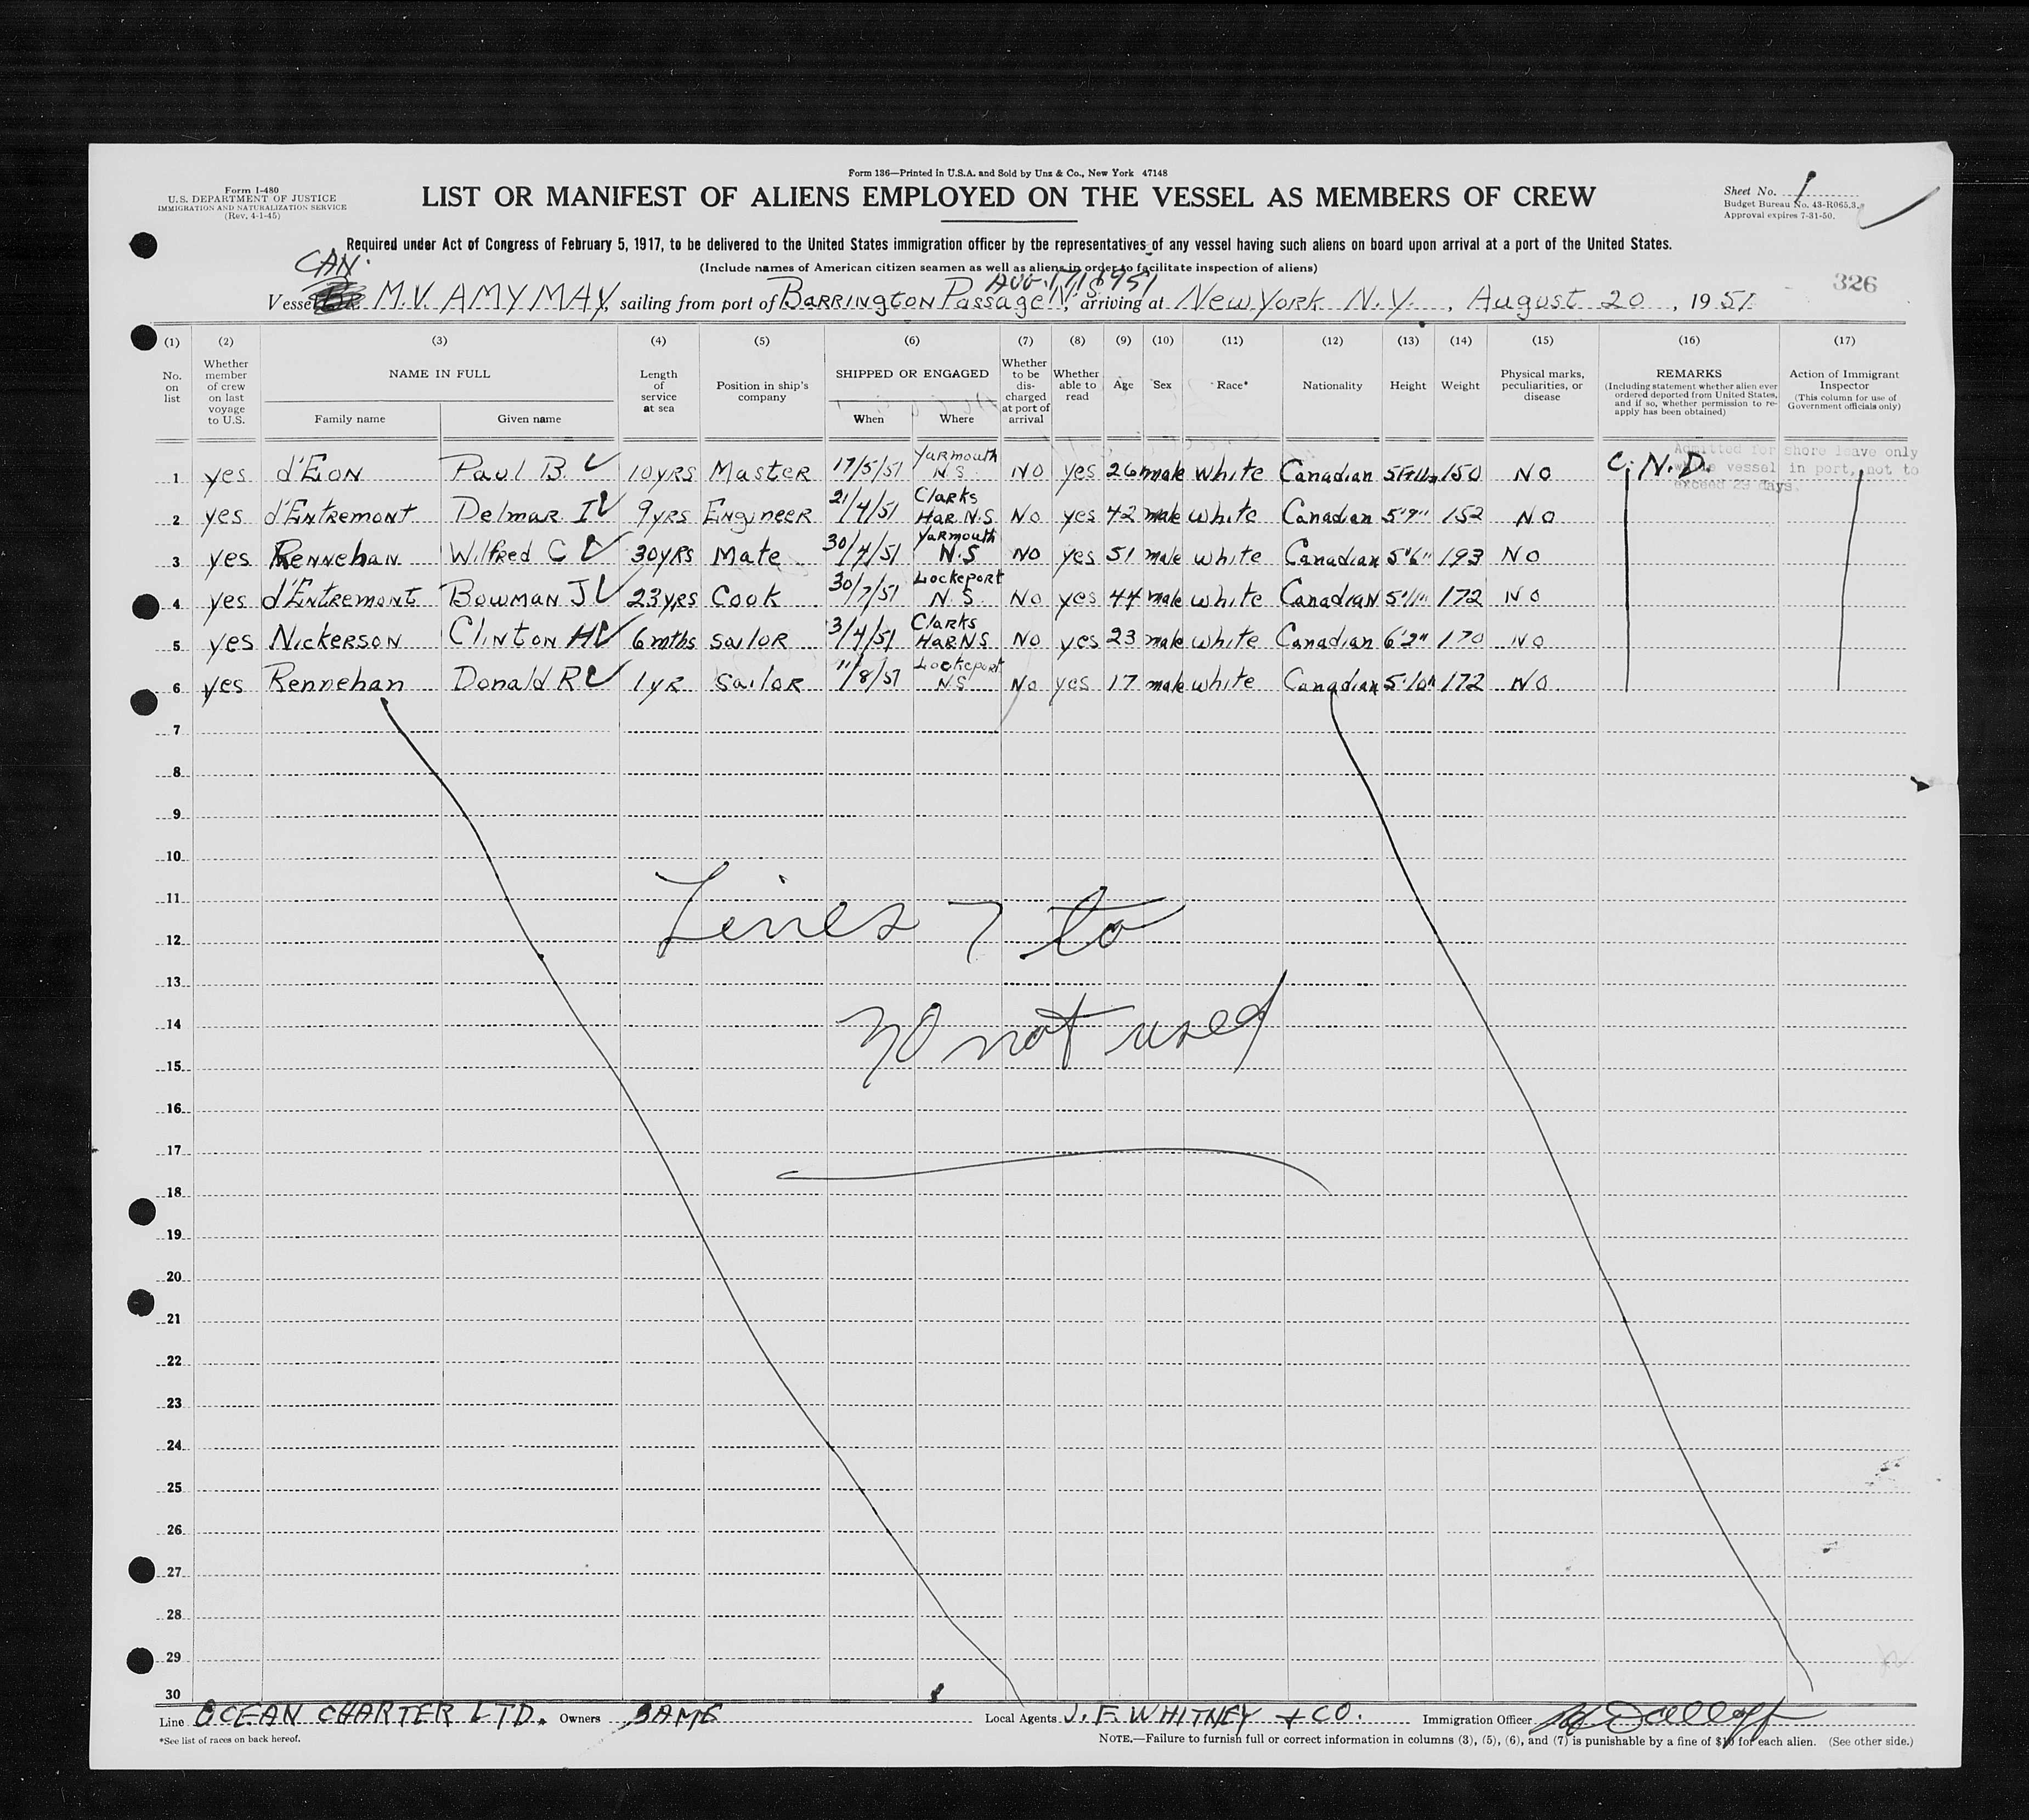 Form 136—Printed in U.S.A. and Sold by Unz & Co., New York 47148
Form I-480
U.S. DEPARTMENT OF JUSTICE
IMMIGRATION AND NATURALIZATION SERVICE
(Rev. 4-1-45)
LIST OR MANIFEST OF ALIENS EMPLOYED ON THE VESSEL AS MEMBERS OF CREW
Sheet No. 1
Budget Bureau No. 43-R065.3.
Approval expires 7-31-50.
Required under Act of Congress of February 5, 1917, to be delivered to the United States immigration officer by the representatives of any vessel having such aliens on board upon arrival at a port of the United States.
(Include names of American citizen seamen as well as aliens in order to facilitate inspection of aliens)
CAN. Aug. 17, 1951
326
Vessel M.V. AMY MAY, sailing from port of Barrington Passage N.S., arriving at New York N.Y., August 20, 1951
(1) (2) (3) (4) (5) (6) (7) (8) (9) (10) (11) (12) (13) (14) (15) (16) (17)
No. on list
Whether member of crew on last voyage to U.S.
NAME IN FULL
Family name
Given name
Length of service at sea
Position in ship's company
SHIPPED OR ENGAGED
When
Where
Whether to be discharged at port of arrival
Whether able to read
Age
Sex
Race*
Nationality
Height
Weight
Physical marks, peculiarities, or disease
REMARKS
(Including statement whether alien ever ordered deported from United States, and if so, whether permission to reapply has been obtained)
Action of Immigrant Inspector
(This column for use of Government officials only)
Admitted for shore leave only
while vessel in port, not to
exceed 29 days.
1 yes d'Eon Paul B. 10 yrs Master 17/5/51 Yarmouth N S No yes 26 male white Canadian 150 NO C. N. D.
2 yes d'Entremont Delmar I 9 yrs Engineer 21/4/51 Clarks Har. N.S No yes 42 male white Canadian 5'9" 152 NO
3 yes Rennehan Wilfred C 30 yrs Mate 30/4/51 Yarmouth N.S NO yes 51 male white Canadian 5'6" 193 NO
4 yes d'Entremont Bowman J 23 yrs Cook 30/7/51 Lockeport N.S. No yes 44 male white Canadian 5'11" 172 NO
5 yes Nickerson Clinton H 6 mths sailor 3/4/51 Clarks Har N S NO yes 23 male white Canadian 6'2" 170 NO
6 yes Rennehan Donald R 1 yr Sailor 11/8/51 Lockeport NS No yes 17 male white Canadian 5'10" 172 NO.
7
8
9
10
11
Lines 7 to
12
13
14
30 not used
15
16
17
18
19
20
21
22
23
24
25
26
27
28
29
30
Line OCEAN CHARTER LTD. Owners SAME Local Agents J. F. WHITNEY + CO. Immigration Officer
*See list of races on back hereof.
NOTE.—Failure to furnish full or correct information in columns (3), (5), (6), and (7) is punishable by a fine of $10 for each alien. (See other side.)